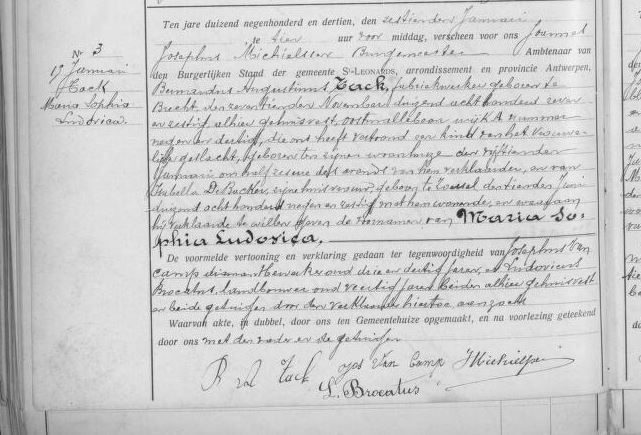 Nr 3
Januari
Tack
Maria Sophia
Ludovica.
Ten jare duizend negenhonderd en dertien, den zestienden Januari
te tien uur voor middag, verscheen voor ons Joannes
Josephus Michielsen Burgemeester Ambtenaar van
den Burgerlijken Stand der gemeente St-LEONARDS, arrondissement en provincie Antwerpen,
Bernardus Augustinus Tack, fabriekwerker geboren te
Brecht den zeventienden November duizend acht honderd zeven
en zestig alhier gehuisvest, wijk A nummer
negen en dertig, die ons heeft vertoond een kind van het vrouwe-
lijk geslacht, geboren ten zijnen woonhuize den vijftienden
Januari om half zes ure des avonds van hem verklaarder, en van
Isabella De Backer, zijne huisvrouw, geboren te Loenhout den tienden Juni
duizend acht honderd negen en zestig met hem wonende, en waaraan
hij verklaarde te willen geven de voornamen van Maria So-
phia Ludovica.
De voormelde vertooning en verklaring gedaan ter tegenwoordigheid van Josephus Van
Camp diamantbewerker oud drie en dertig jaren, en Ludovicus
Brocatus, landbouwer oud veertig jaren beiden alhier gehuisvest
en beide getuigen door den verklaarder hiertoe aangezocht
Waarvan akte, in dubbel, door ons ten Gemeentehuize opgemaakt, en na voorlezing geteekend
door ons met den vader en de getuigen
Tack Jos Van Camp JMichielsen
L. Brocatus